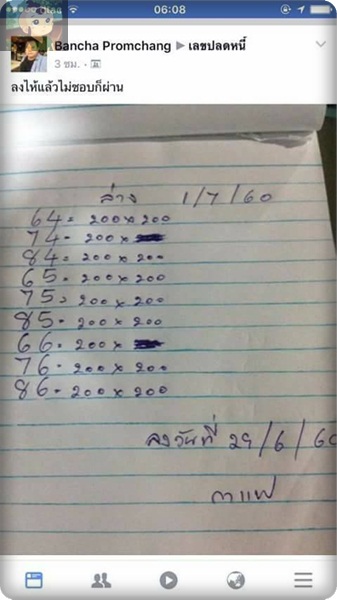 06:08
Bancha Promchang ▶ เลขปลดหนี้
3 ชม.
ลงให้แล้วไม่ชอบก็ผ่าน
ล่าง 1/7/60
64= 200x200
74= 200x
84= 200x200
65= 200x200
75= 200x200
85= 200x200
66= 200x
76= 200x200
86= 200x200
ลงวันที่ 29/6/60
กาแฟ